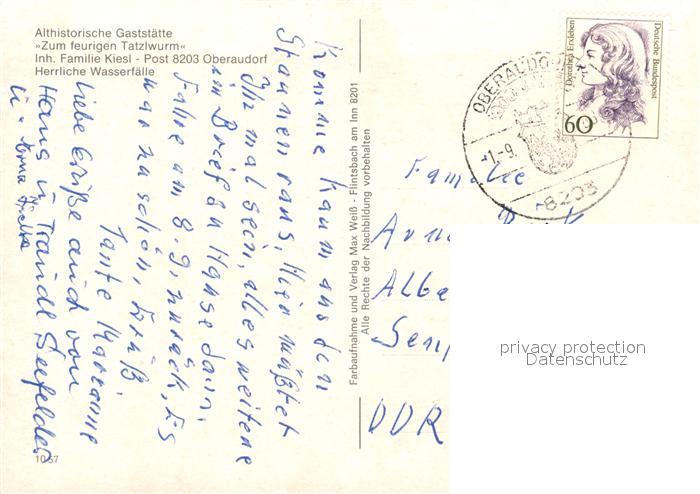 Althistorische Gaststätte
»Zum feurigen Tatzlwurm«
Inh. Familie Kiesl - Post 8203 Oberaudorf
Herrliche Wasserfälle
Komme kaum aus den
Staunen raus, Hier müßtet
Ihr mal sein, alles weitere
im Brief zu Hause dann.
Fahre am 8.9. zurück, Es
war zu schön, Gruß
Tante Marianne
Liebe Grüße auch von
Hans u. Traudl Seefelder
u.
1057
Farbaufnahme und Verlag Max Weiß - Flintsbach am Inn 8201
Alle Rechte der Nachbildung vorbehalten
OBERAUDO
-1.-9.
8203
Dorothea Erxleben
Deutsche Bundespost
60
Familie
DDR
privacy protection
Datenschutz